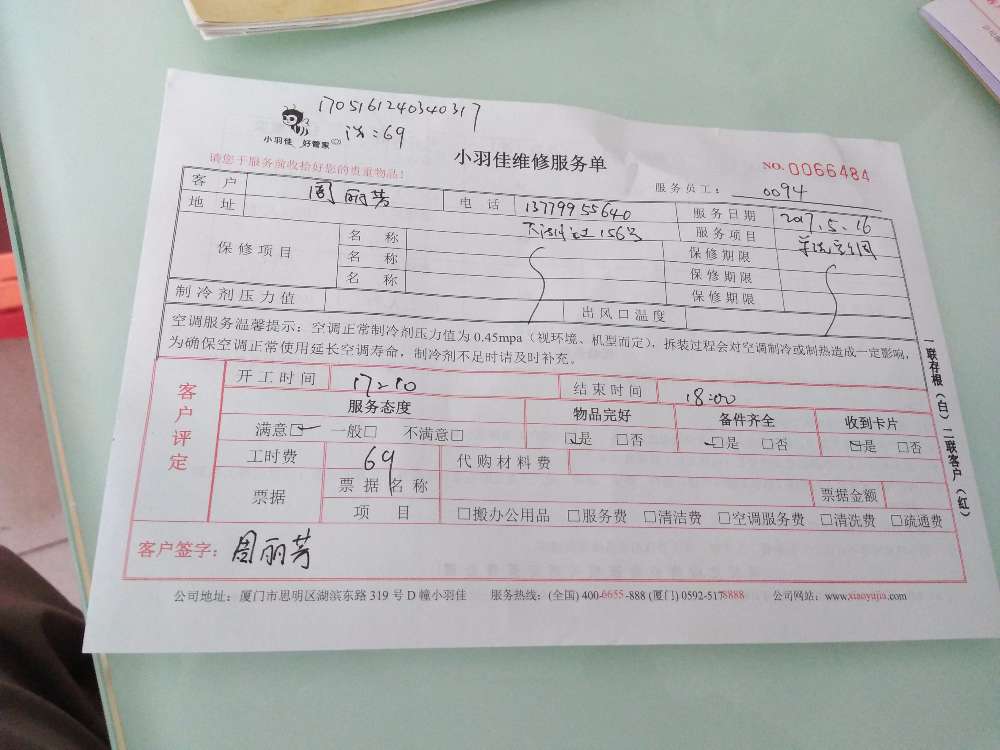 1705161240340317
小羽佳 好管家
:69
小羽佳维修服务单
NO.0066484
请您于服务前收拾好您的贵重物品!
服务员工: 0094
客 户 周丽芳 电 话 13779955640 服务日期 2017.5.16
地 址 156号 服务项目
保修项目 名 称 保修期限
名 称 保修期限
名 称 保修期限
制冷剂压力值 出风口温度
空调服务温馨提示:空调正常制冷剂压力值为0.45mpa(视环境、机型而定),拆装过程会对空调制冷或制热造成一定影响,
为确保空调正常使用延长空调寿命,制冷剂不足时请及时补充。
一联存根(白)二联客户(红)
客户评定
开工时间 17:10 结束时间 18:00
服务态度 物品完好 备件齐全 收到卡片
满意□ 一般□ 不满意□ □是 □否 □是 □否 □是 □否
工时费 69 代购材料费
票据 票据名称 票据金额
项 目 □搬办公用品 □服务费 □清洁费 □空调服务费 □清洗费 □疏通费
客户签字: 周丽芳
公司地址:厦门市思明区湖滨东路319号D幢小羽佳 服务热线:(全国)400-6655-888(厦门)0592-5178888 公司网站:www.xiaoyujia.com